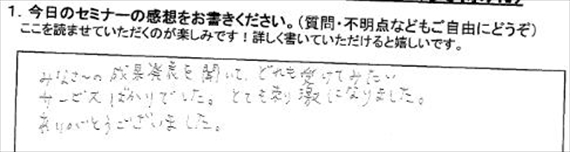 1. 今日のセミナーの感想をお書きください。(質問・不明点などもご自由にどうぞ)
ここを読ませていただくのが楽しみです!詳しく書いていただけると嬉しいです。
みなさんの成果発表を聞いて、どれも受けてみたい
サービスばかりでした。とても刺激になりました。
ありがとうございました。